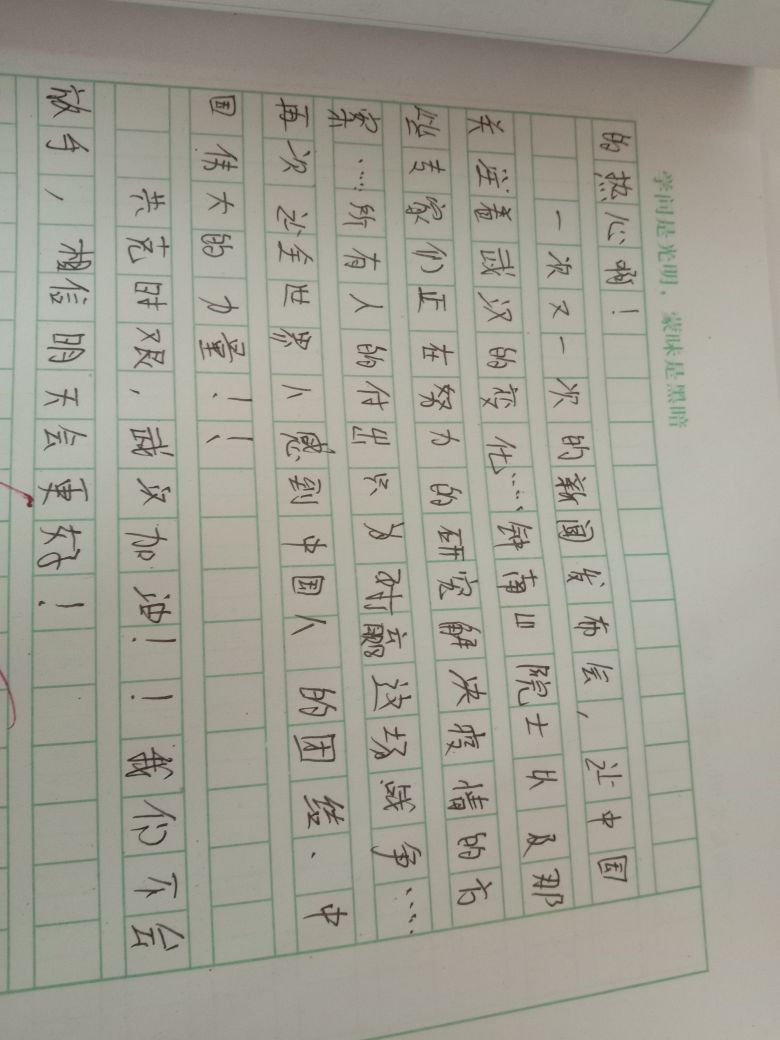 学问是光明，蒙昧是黑暗
的热心啊！
一次又一次的新闻发布会，让中国
关注着武汉的变化……钟南山院士以及那
些专家们正在努力的研究解决疫情的方
案……所有人的付出只为对赢这场战争……
再次让全世界人感到中国人的团结、中
国伟大的力量！！
共克时艰，武汉加油！！我们不会
放手，相信明天会更好！